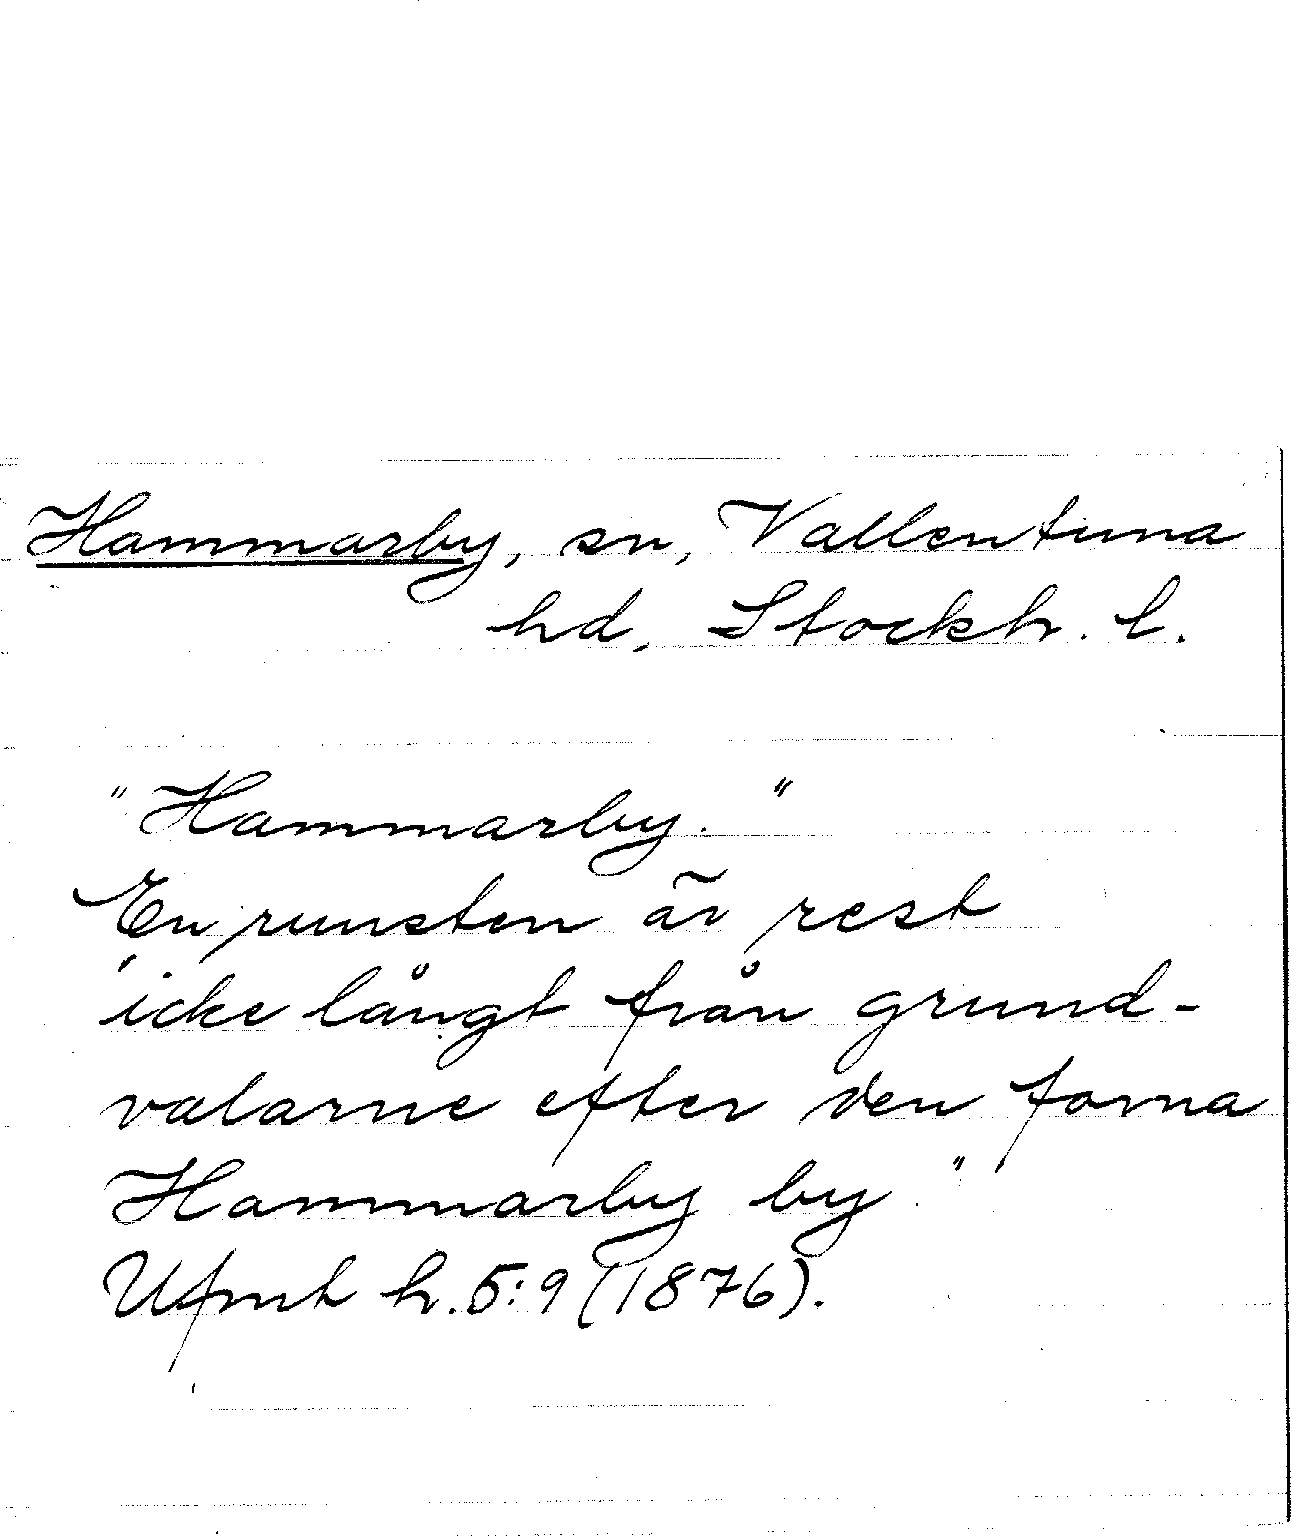 Hammarby, sn, Vallentuna
hd, Stockh. l.
"Hammarby."
En runsten är rest
icke långt från grund-
valarne efter den forna
Hammarby by."
Ufmt h. 5:9 (1876).